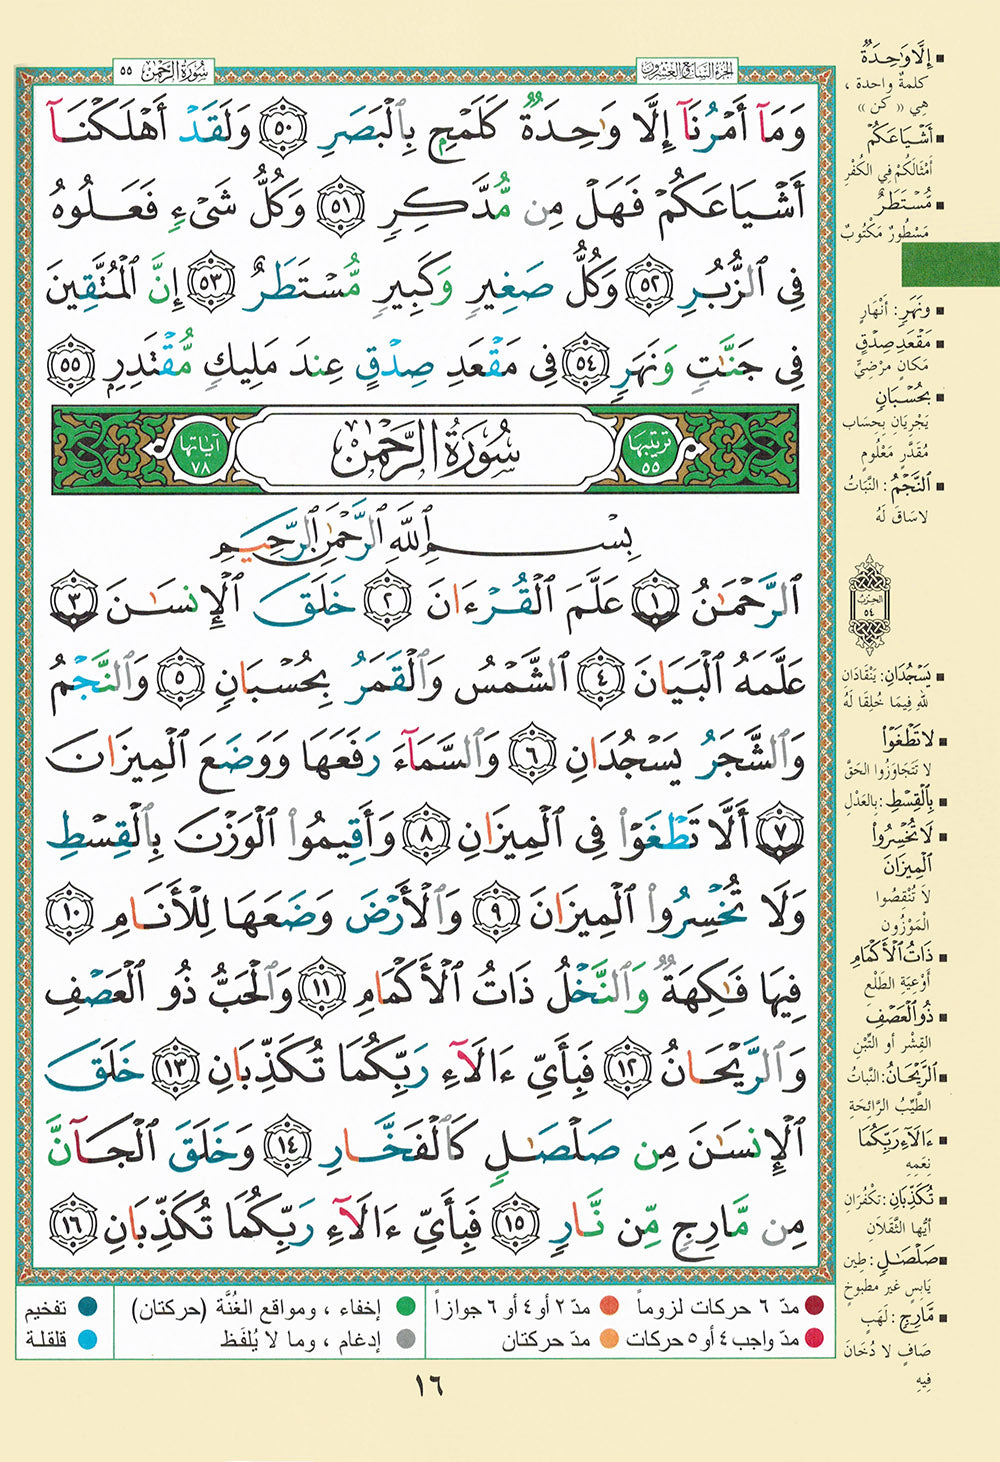 سُورَةُ الرَّحْمٰن ٥٥
الجزء السابع والعشرون
وَمَآ أَمْرُنَآ إِلَّا وَٰحِدَةٌ كَلَمْحٍۭ بِٱلْبَصَرِ ٥٠ وَلَقَدْ أَهْلَكْنَآ
أَشْيَاعَكُمْ فَهَلْ مِن مُّدَّكِرٍ ٥١ وَكُلُّ شَىْءٍ فَعَلُوهُ
فِى ٱلزُّبُرِ ٥٢ وَكُلُّ صَغِيرٍ وَكَبِيرٍ مُّسْتَطَرٌ ٥٣ إِنَّ ٱلْمُتَّقِينَ
فِى جَنَّٰتٍ وَنَهَرٍ ٥٤ فِى مَقْعَدِ صِدْقٍ عِندَ مَلِيكٍ مُّقْتَدِرٍۭ ٥٥
ترتيبها ٥٥ سُورَةُ الرَّحْمٰن آياتها ٧٨
بِسْمِ ٱللَّهِ ٱلرَّحْمَٰنِ ٱلرَّحِيمِ
ٱلرَّحْمَٰنُ ١ عَلَّمَ ٱلْقُرْءَانَ ٢ خَلَقَ ٱلْإِنسَٰنَ ٣
عَلَّمَهُ ٱلْبَيَانَ ٤ ٱلشَّمْسُ وَٱلْقَمَرُ بِحُسْبَانٍ ٥ وَٱلنَّجْمُ
وَٱلشَّجَرُ يَسْجُدَانِ ٦ وَٱلسَّمَآءَ رَفَعَهَا وَوَضَعَ ٱلْمِيزَانَ
٧ أَلَّا تَطْغَوْا۟ فِى ٱلْمِيزَانِ ٨ وَأَقِيمُوا۟ ٱلْوَزْنَ بِٱلْقِسْطِ
وَلَا تُخْسِرُوا۟ ٱلْمِيزَانَ ٩ وَٱلْأَرْضَ وَضَعَهَا لِلْأَنَامِ ١٠
فِيهَا فَٰكِهَةٌ وَٱلنَّخْلُ ذَاتُ ٱلْأَكْمَامِ ١١ وَٱلْحَبُّ ذُو ٱلْعَصْفِ
وَٱلرَّيْحَانُ ١٢ فَبِأَىِّ ءَالَآءِ رَبِّكُمَا تُكَذِّبَانِ ١٣ خَلَقَ
ٱلْإِنسَٰنَ مِن صَلْصَٰلٍ كَٱلْفَخَّارِ ١٤ وَخَلَقَ ٱلْجَآنَّ
مِن مَّارِجٍ مِّن نَّارٍ ١٥ فَبِأَىِّ ءَالَآءِ رَبِّكُمَا تُكَذِّبَانِ ١٦
إِلَّا وَٰحِدَةٌ
كلمةٌ واحدة ،
هِي « كن »
أَشْيَاعَكُمْ
أَمْثَالَكُمْ فِي الكُفْرِ
مُّسْتَطَرٌ
مَسْطُورٌ مَكْتُوبٌ
وَنَهَرٍ: أَنْهَارٍ
مَقْعَدِ صِدْقٍ
مَكَانٍ مَرْضِيٍّ
بِحُسْبَانٍ
يَجْرِيَانِ بِحسَاب
مُقَدَّرٍ مَعْلُومٍ
ٱلنَّجْمُ : النَّبَاتُ
لاسَاقَ لَهُ
الحِزْبُ ٥٤
يَسْجُدَانِ: يَنْقَادَان
للهِ فِيمَا خُلِقَا لَهُ
لاتَطْغَوْا۟
لا تَتَجَاوَزُوا الحَقَّ
بِٱلْقِسْطِ : بِالعَدْلِ
لَا تُخْسِرُوا۟
ٱلْمِيزَانَ
لا تُنْقِصُوا
الْمَوْزُون
ذَاتُ ٱلْأَكْمَامِ
أَوْعِيَةِ الطَّلْعِ
ذُو ٱلْعَصْفِ
القِشْرِ أو التِّبْنِ
ٱلرَّيْحَانُ : النَّبَاتُ
الطَّيِّبُ الرَّائِحَةِ
ءَالَآءِ رَبِّكُمَا
نِعَمِهِ
تُكَذِّبَانِ : تَكْفُرَانِ
أيُّها الثَّقَلَان
صَلْصَٰلٍ : طِين
يَابِسٍ غير مطبوخٍ
مَّارِجٍ : لَهَبٍ
صَافٍ لا دُخَانَ
فِيهِ
مدّ ٦ حركات لزوماً
مدّ ٢ أو ٤ أو ٦ جوازاً
إخفاء ، ومواقع الغُنَّة (حركتان)
تفخيم
مدّ واجب ٤ أو ٥ حركات
مدّ حركتان
إدغام ، وما لا يُلفَظ
قلقلة
١٦